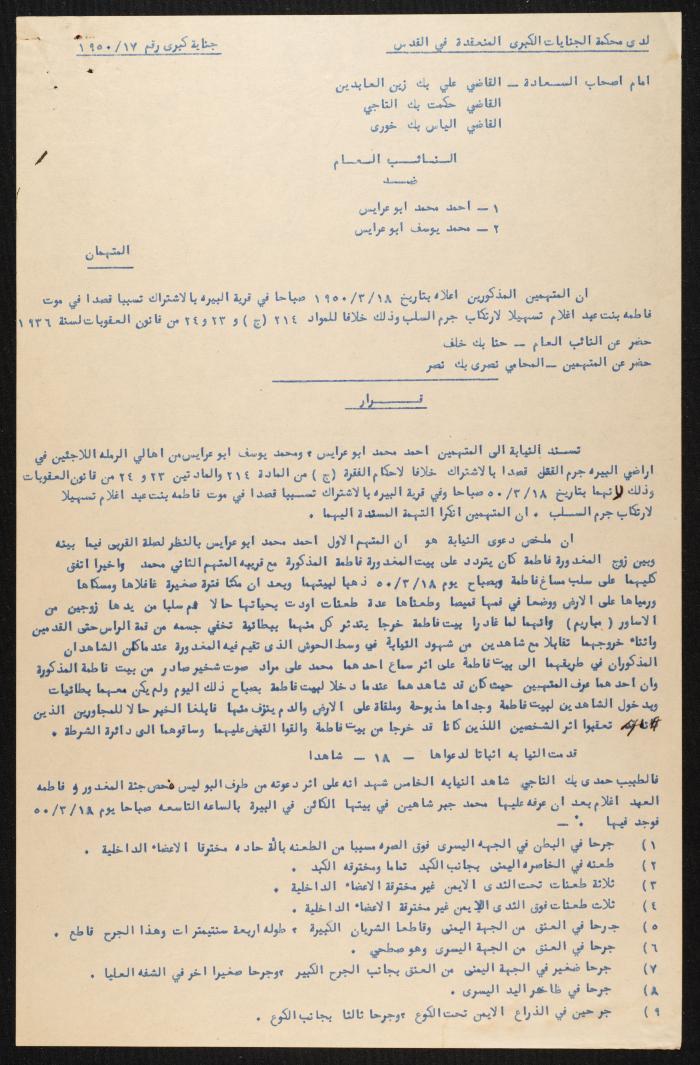 لدى محكمة الجنايات الكبرى المنعقدة في القدس
جناية كبرى رقم ١٩٥٠/١٧
امام اصحاب السعادة ــ القاضي علي بك زين العابدين
القاضي حكمت بك التاجي
القاضي الياس بك خورى
النائب العام
ضد
١ ــ احمد محمد ابو عرايس
٢ ــ محمد يوسف ابو عرايس
المتهمان
ان المتهمين المذكورين اعلاه بتاريخ ١٩٥٠/٣/١٨ صباحا في قرية البيره بالاشتراك تسببا قصدا في موت
فاطمه بنت عبد اغلام تسهيلا لارتكاب جرم السلب وذلك خلافا للمواد ٢١٤ (ج) و ٢٣ و ٢٤ من قانون العقوبات لسنة ١٩٣٦
حضر عن النائب العام ــ حنا بك خلف
حضر عن المتهمين ــ المحامي نصرى بك نصر
قرار
تسند النيابة الى المتهمين احمد محمد ابو عرايس ، ومحمد يوسف ابو عرايس من اهالي الرمله اللاجئين في
اراضي البيره جرم القتل قصدا بالاشتراك خلافا لاحكام الفقرة (ج) من المادة ٢١٤ والمادتين ٢٣ و ٢٤ من قانون العقوبات
وذلك لانهما بتاريخ ٥٠/٣/١٨ صباحا وفي قرية البيره بالاشتراك تسببا قصدا في موت فاطمه بنت عبد اغلام تسهيلا
لارتكاب جرم السلب . ان المتهمين انكرا التهمة المسندة اليهما .
ان ملخص دعوى النيابة هو ان المتهم الاول احمد محمد ابو عرايس بالنظر لصلة القربى فيما بينه
وبين زوج المغدورة فاطمة كان يتردد على بيت المغدورة فاطمة المذكورة مع قريبه المتهم الثاني محمد واخيرا اتفق
كليهما على سلب مساغ فاطمة وبصباح يوم ٥٠/٣/١٨ ذهبا لبيتهما وبعد ان مكثا فترة صغيرة غافلاها ومسكاها
ورمياها على الارض ووضعا في فمها قميصا وطعناها عدة طعنات اودت بحياتها حالا ثم سلبا من يدها زوجين من
الاساور (مباريم) وانهما لما غادرا بيت فاطمة خرجا يتدثر كل منهما ببطانية تخفي جسمه من قمة الراس حتى القدمين
واثناء خروجهما تقابلا مع شاهدين من شهود النيابة في وسط الحوش الذى تقيم فيه المغدورة عندما كان الشاهدان
المذكوران في طريقهما الى بيت فاطمة على اثر سماع احدهما محمد على مراد صوت شخير صادر من بيت فاطمة المذكورة
وان احدهما عرف المتهمين حيث كان قد شاهدهما عندما دخلا لبيت فاطمة بصباح ذلك اليوم ولم يكن معهما بطانيات
وبدخول الشاهدين لبيت فاطمة وجداها مذبوحة وملقاة على الارض والدم ينزف منها فابلغا الخبر حالا للمجاورين الذين
تعقبوا اثر الشخصين اللذين كانا قد خرجا من بيت فاطمة والقوا القبض عليهما وساقوهما الى دائرة الشرطة .
قدمت النيابه اثباتا لدعواها ــ ١٨ ــ شاهدا
فالطبيب حمدى بك التاجي شاهد النيابه الخامس شهد انه على اثر دعوته من طرف البوليس فحص جثة المغدورة فاطمه
العبد اغلام بعد ان عرفه عليها محمد جبر شاهين في بيتها الكائن في البيرة بالساعه التاسعه صباحا يوم ٥٠/٣/١٨
فوجد فيها : ــ
١) جرحا في البطن في الجهه اليسرى فوق الصره مسببا من الطعنه بالة حاده مخترقا الاعضاء الداخلية .
٢) طعنه في الخاصره اليمنى بجانب الكبد تماما ومخترقه الكبد .
٣) ثلاثة طعنات تحت الثدى الايمن غير مخترقة الاعضاء الداخلية .
٤) ثلاث طعنات فوق الثدى الايمن غير مخترقة الاعضاء الداخلية .
٥) جرحا في العنق من الجهة اليمنى وقاطعا الشريان الكبيرة ، طوله اربعة سنتيمترات وهذا الجرح قاطع .
٦) جرحا في العنق من الجهة اليسرى وهو سطحي .
٧) جرحا صغير في الجهة اليمنى من العنق بجانب الجرح الكبير ، وجرحا صغيرا اخر في الشفه العليا .
٨) جرحا في ظاهر اليد اليسرى .
٩) جرحين في الذراع الايمن تحت الكوع ، وجرحا ثالثا بجانب الكوع .